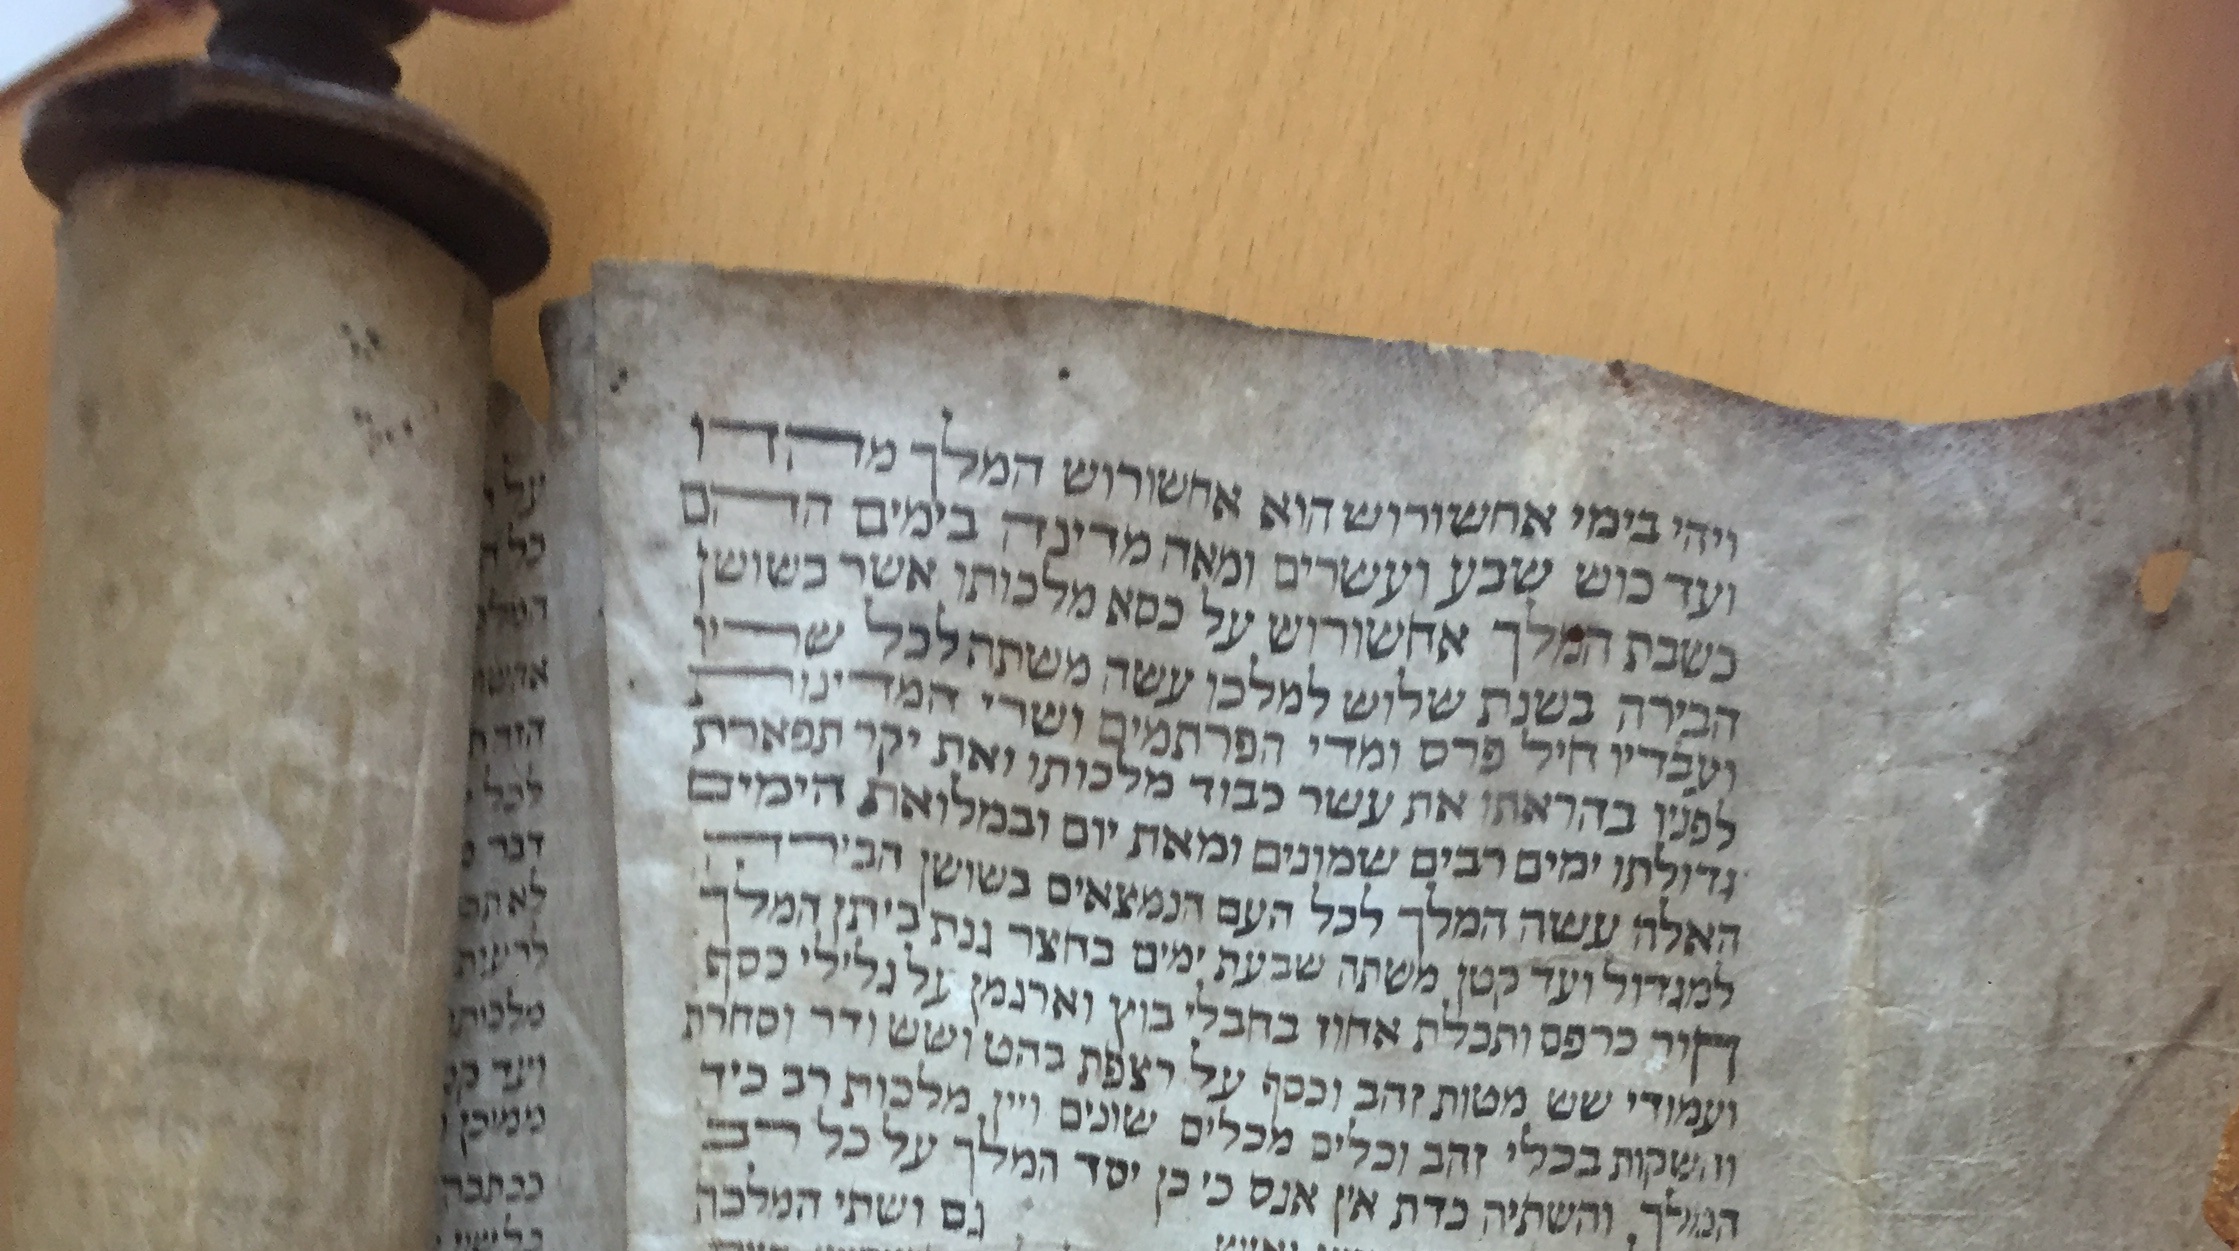 ויהי בימי אחשורוש הוא אחשורוש המלך מהדו
ועד כוש שבע ועשרים ומאה מדינה בימים ההם
כשבת המלך אחשורוש על כסא מלכותו אשר בשושן
הבירה בשנת שלוש למלכו עשה משתה לכל שריו
ועבדיו חיל פרס ומדי הפרתמים ושרי המדינות
לפניו בהראתו את עשר כבוד מלכותו ואת יקר תפארת
גדולתו ימים רבים שמונים ומאת יום ובמלואת הימים
האלה עשה המלך לכל העם הנמצאים בשושן הבירה
למגדול ועד קטן משתה שבעת ימים בחצר גנת ביתן המלך
חור כרפס ותכלת אחוז בחבלי בוץ וארגמן על גלילי כסף
ועמודי שש מטות זהב וכסף על רצפת בהט ושש ודר וסחרת
והשקות בכלי זהב וכלים מכלים שונים ויין מלכות רב כיד
המלך והשתיה כדת אין אנס כי כן יסד המלך על כל רב
ואיש גם ושתי המלכה
על
כל
לכל
דבר
ועד
ממוכן
ככתבה